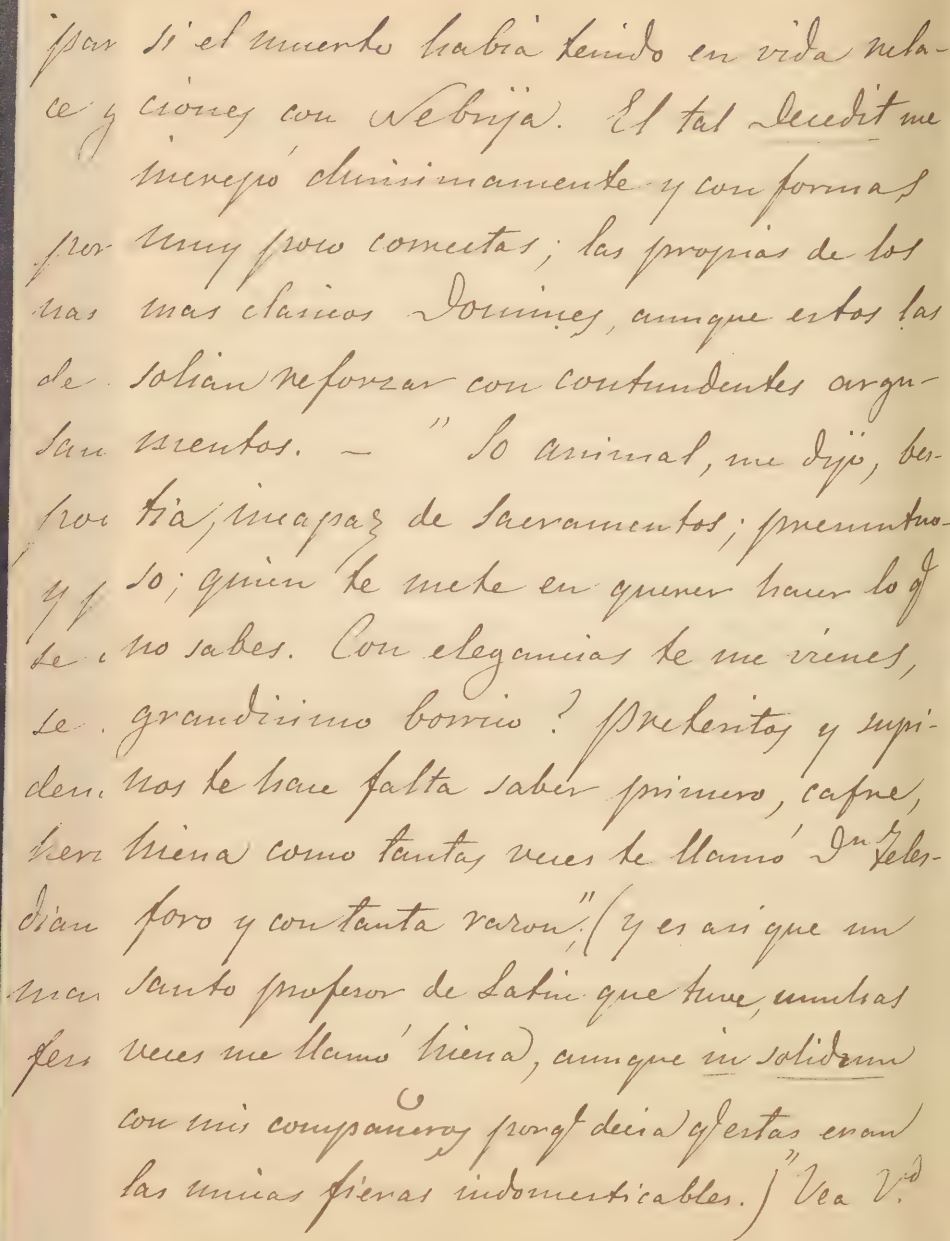 si el muerto habia tenido en vida rela-
ciones con Nebrija. El tal Decedit me
increpó durisimamente y con formas
muy poco correctas; las propias de los
mas clasicos Domines, aunque estos las
solian reforzar con contundentes argu-
mentos. — "So animal, me dijo, bes-
tia, incapaz de Sacramentos; presuntuo-
so; quien te mete en querer hacer lo q
no sabes. Con elegancias te me vienes,
grandisimo borrico? preteritos y supi-
nos te hace falta saber primero, cafre,
hiena como tantas veces te llamó Dn Teles-
foro y con tanta razon"; (y es asi que un
santo profesor de Latin que tuve, muchas
veces me llamó hiena), aunque in solidum
con mis compañeros porq decia q estas eran
las unicas fieras indomesticables.) "Vea V.d
par
ce y
por
nas
de
san
y
se
se
dian